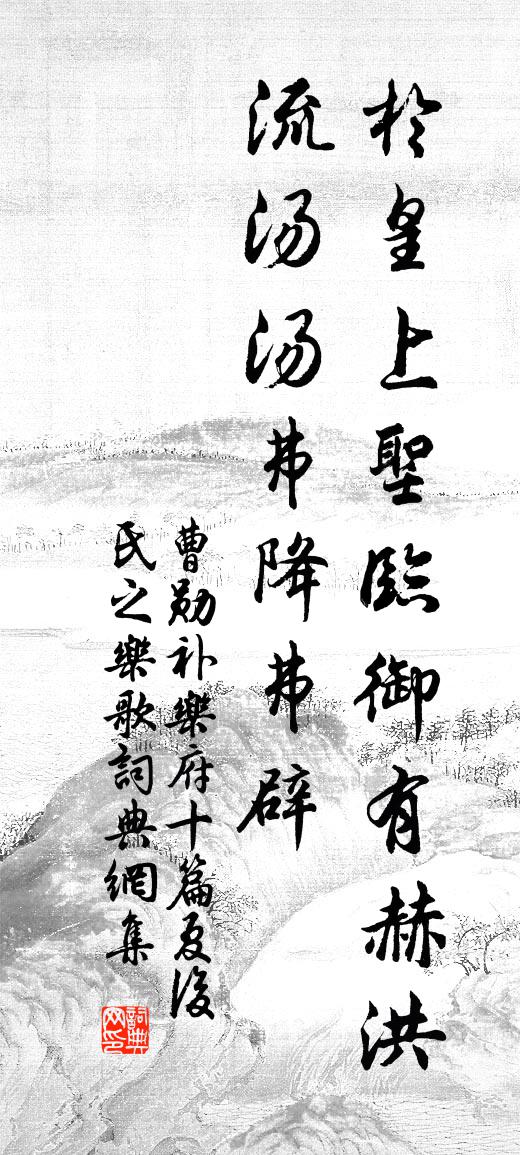 於皇上聖臨御有赫洪
流汤汤弗降弗辟
曹勋补樂府十篇夏后
氏之樂歌詞典網集
詞典網印